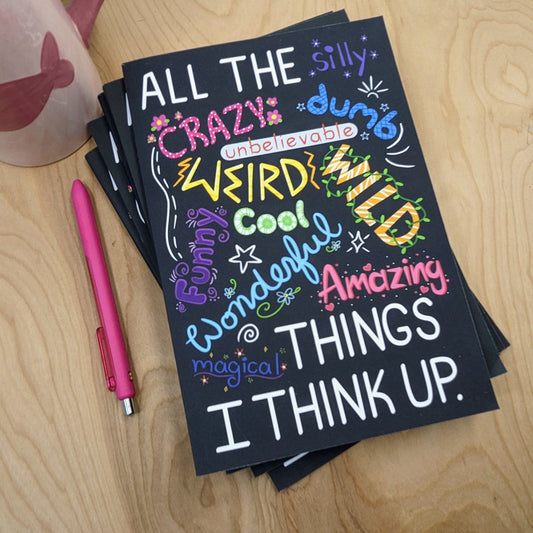 ALL THE silly
CRAZY dumb
unbelievable
WEIRD WILD
Cool
Funny
Wonderful
Amazing
THINGS
magical
I THINK UP.